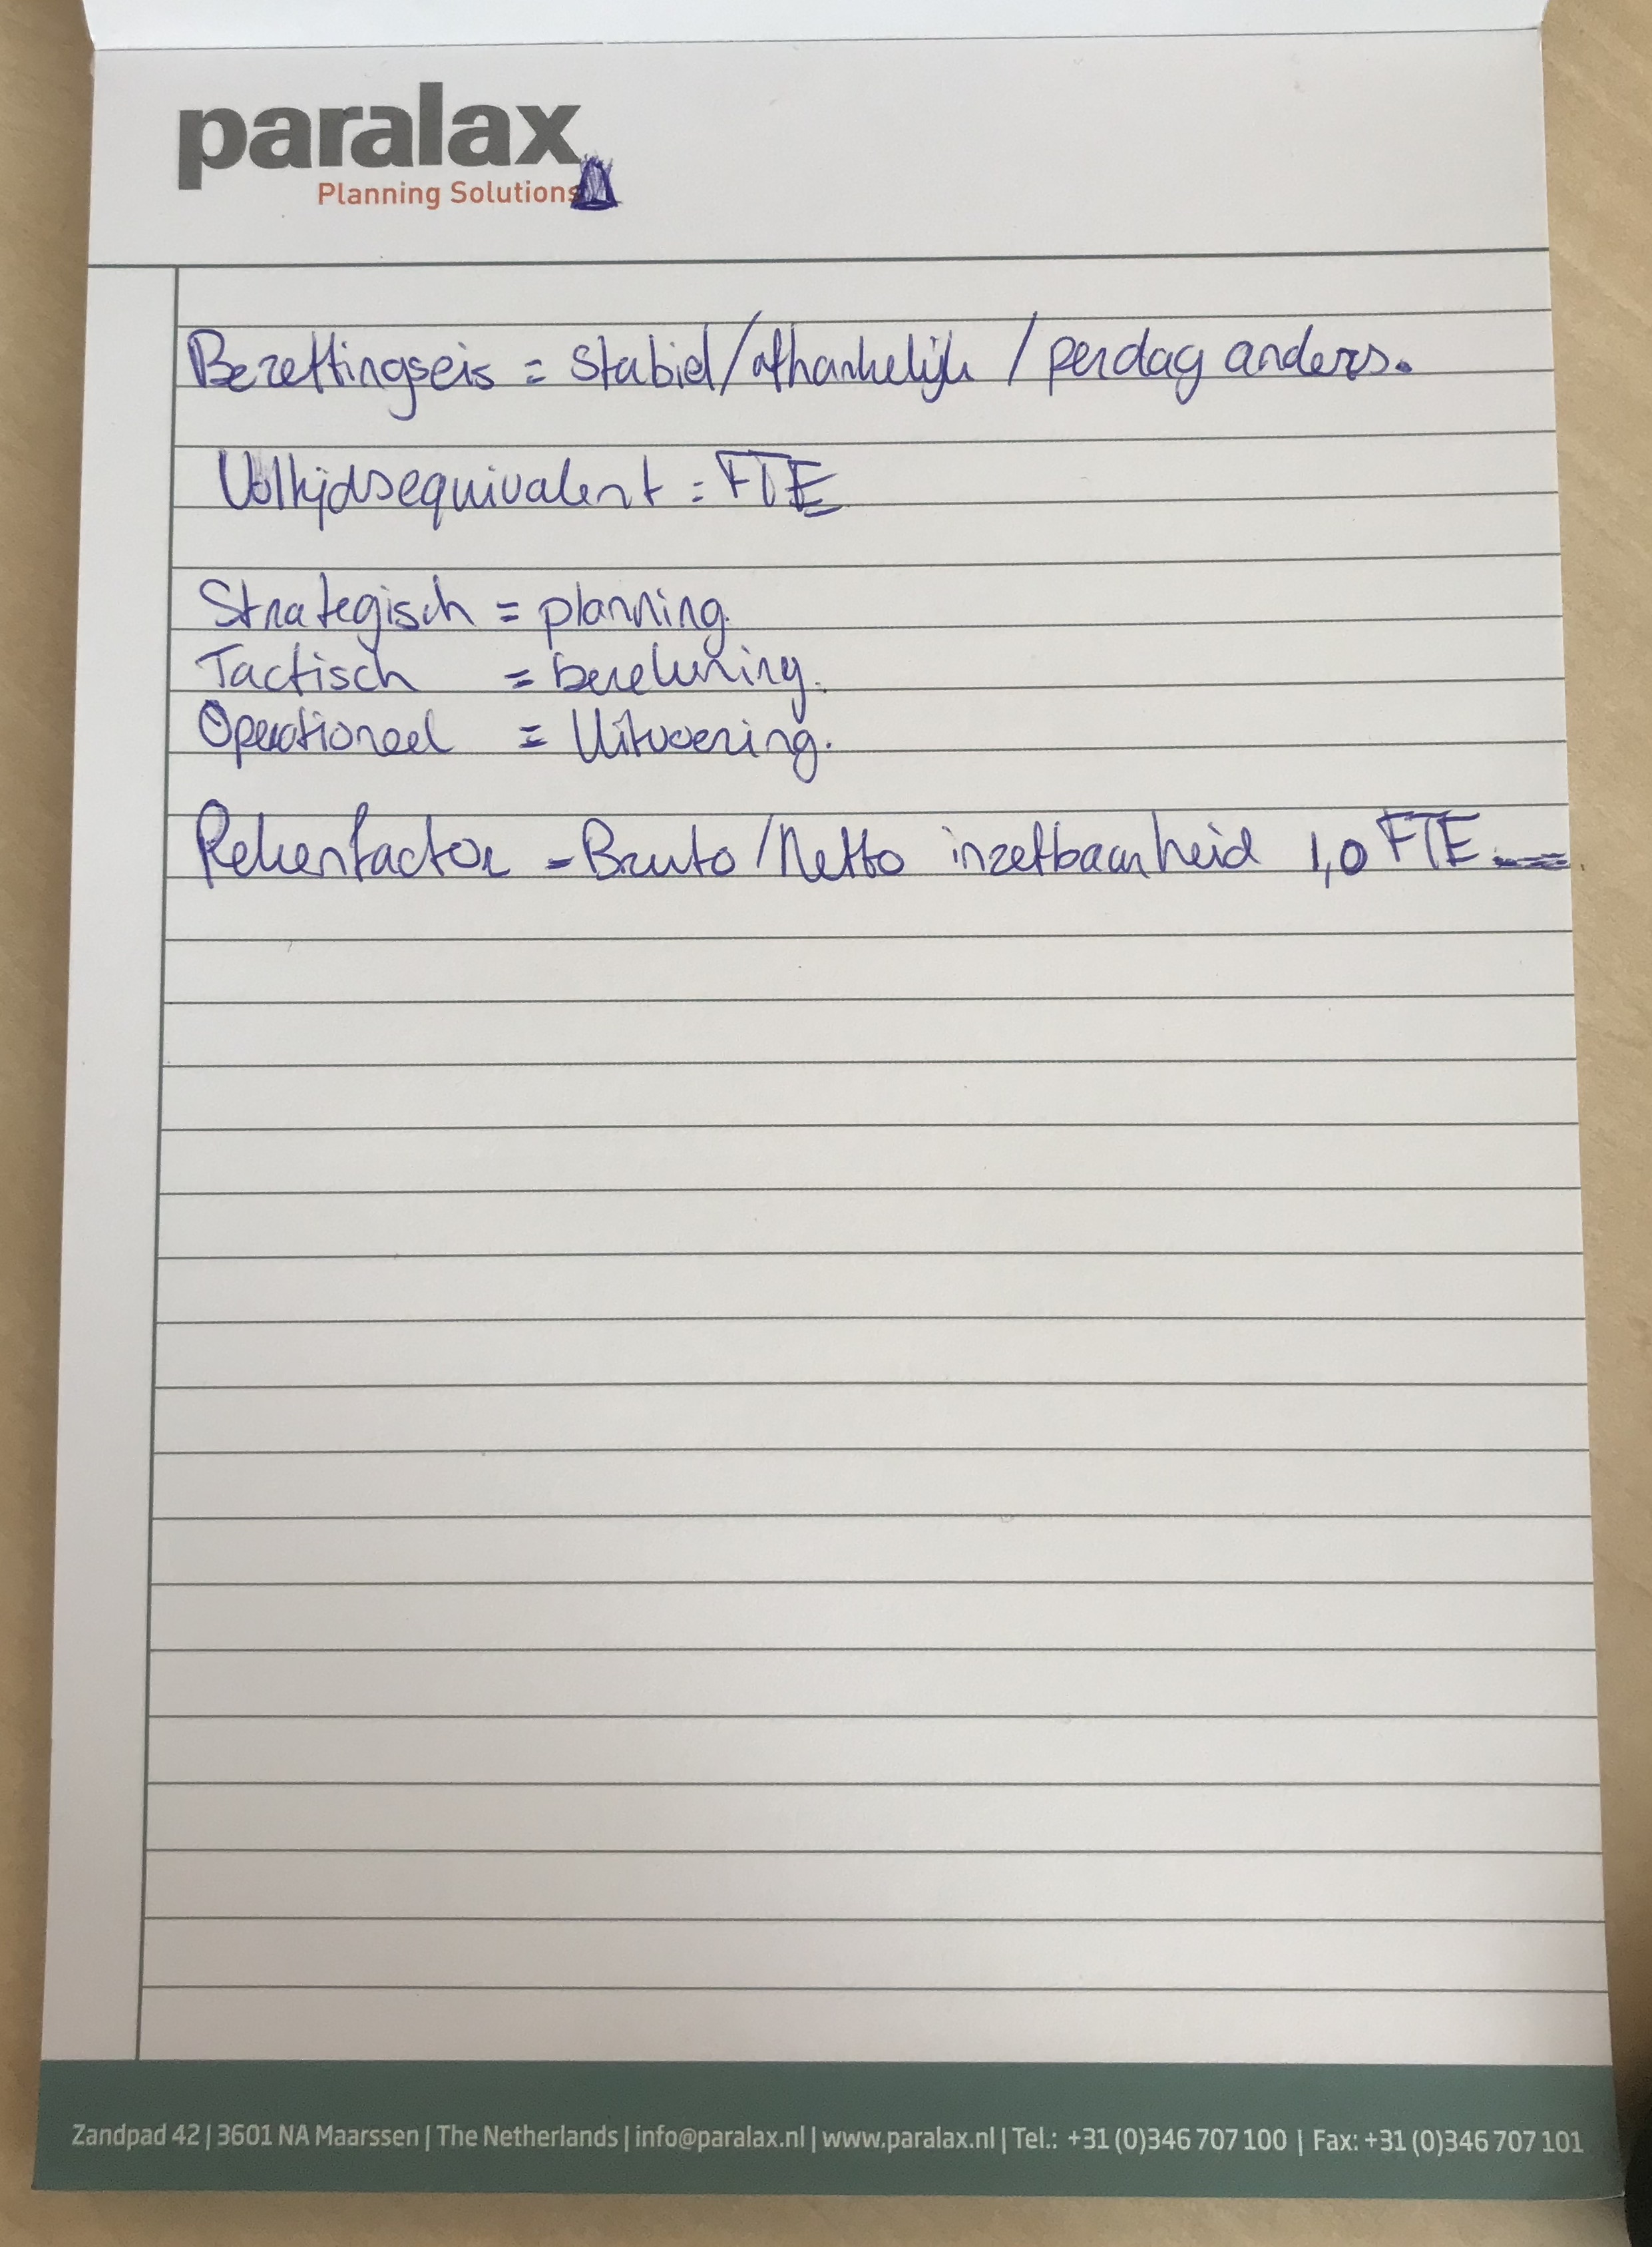 paralax
Planning Solutions
Bezettingseis = stabiel/afhankelijk / per dag anders.
Voltijdsequivalent = FTE
Strategisch = planning.
Tactisch = berekening.
Operationeel = Uitvoering.
Rekenfactor = Bruto/Netto inzetbaarheid 1,0 FTE.
Zandpad 42 | 3601 NA Maarssen | The Netherlands | info@paralax.nl | www.paralax.nl | Tel.: +31 (0)346 707 100 | Fax: +31 (0)346 707 101